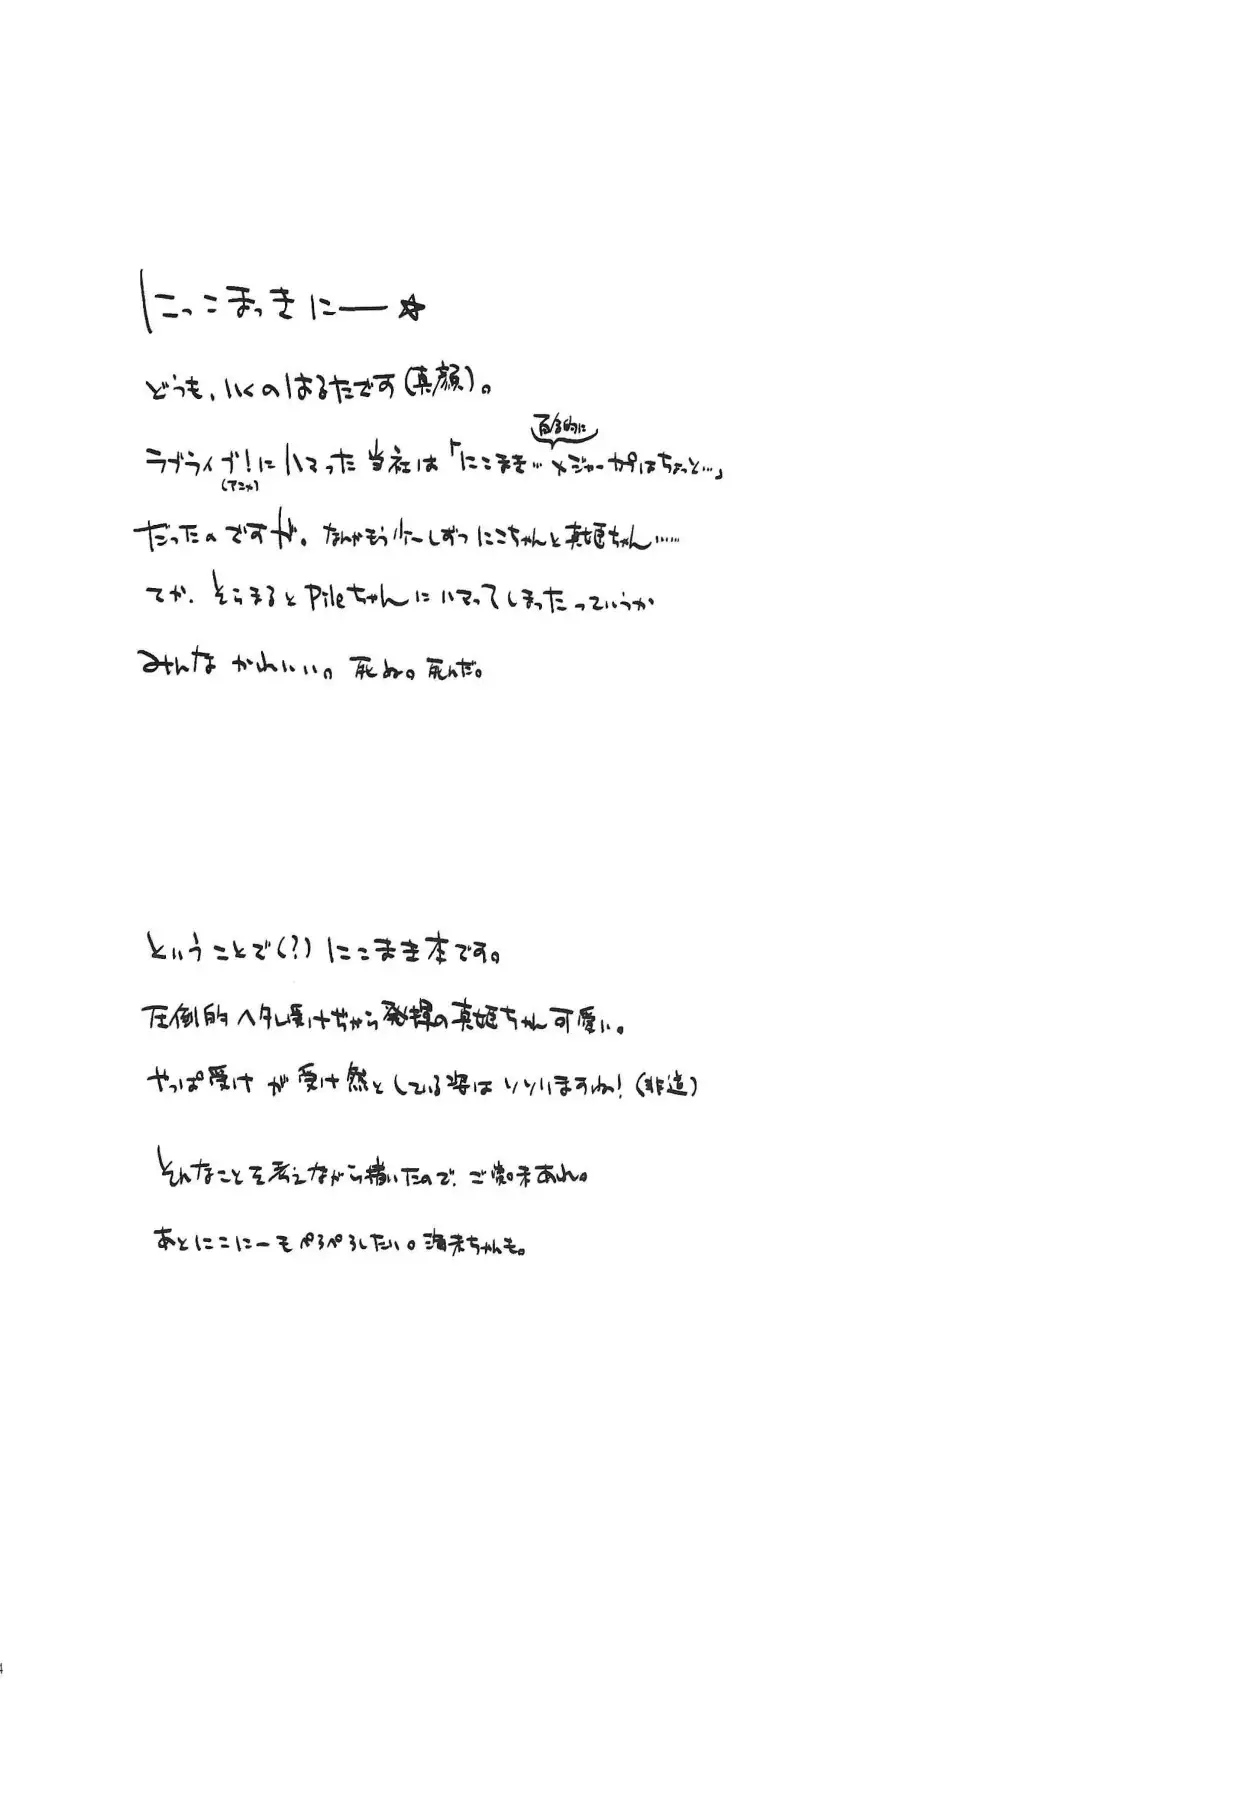 にっこまっきにー☆
どうも、いくのはるたです(真顔)。
百合的に
ラブライブ!にハマった当社は「にこまき… メジャーカプはちょっと…」
(アニメ)
だったのですが。なんかもう少ーしずつにこちゃんと真姫ちゃん……
てか、そらまるとPileちゃんにハマってしまったっていうか
みんなかわいい。死ぬ。死んだ。
ということで(?)にこまき本です。
圧倒的ヘタレ受けぢから発揮の真姫ちゃん可愛い。
やっぱ受けが受け然としている姿はいいいますね!(非道)
そんなことを考えながら描いたので、ご賞味あれ。
あとにこにーもぺろぺろしたい。海未ちゃんも。
4